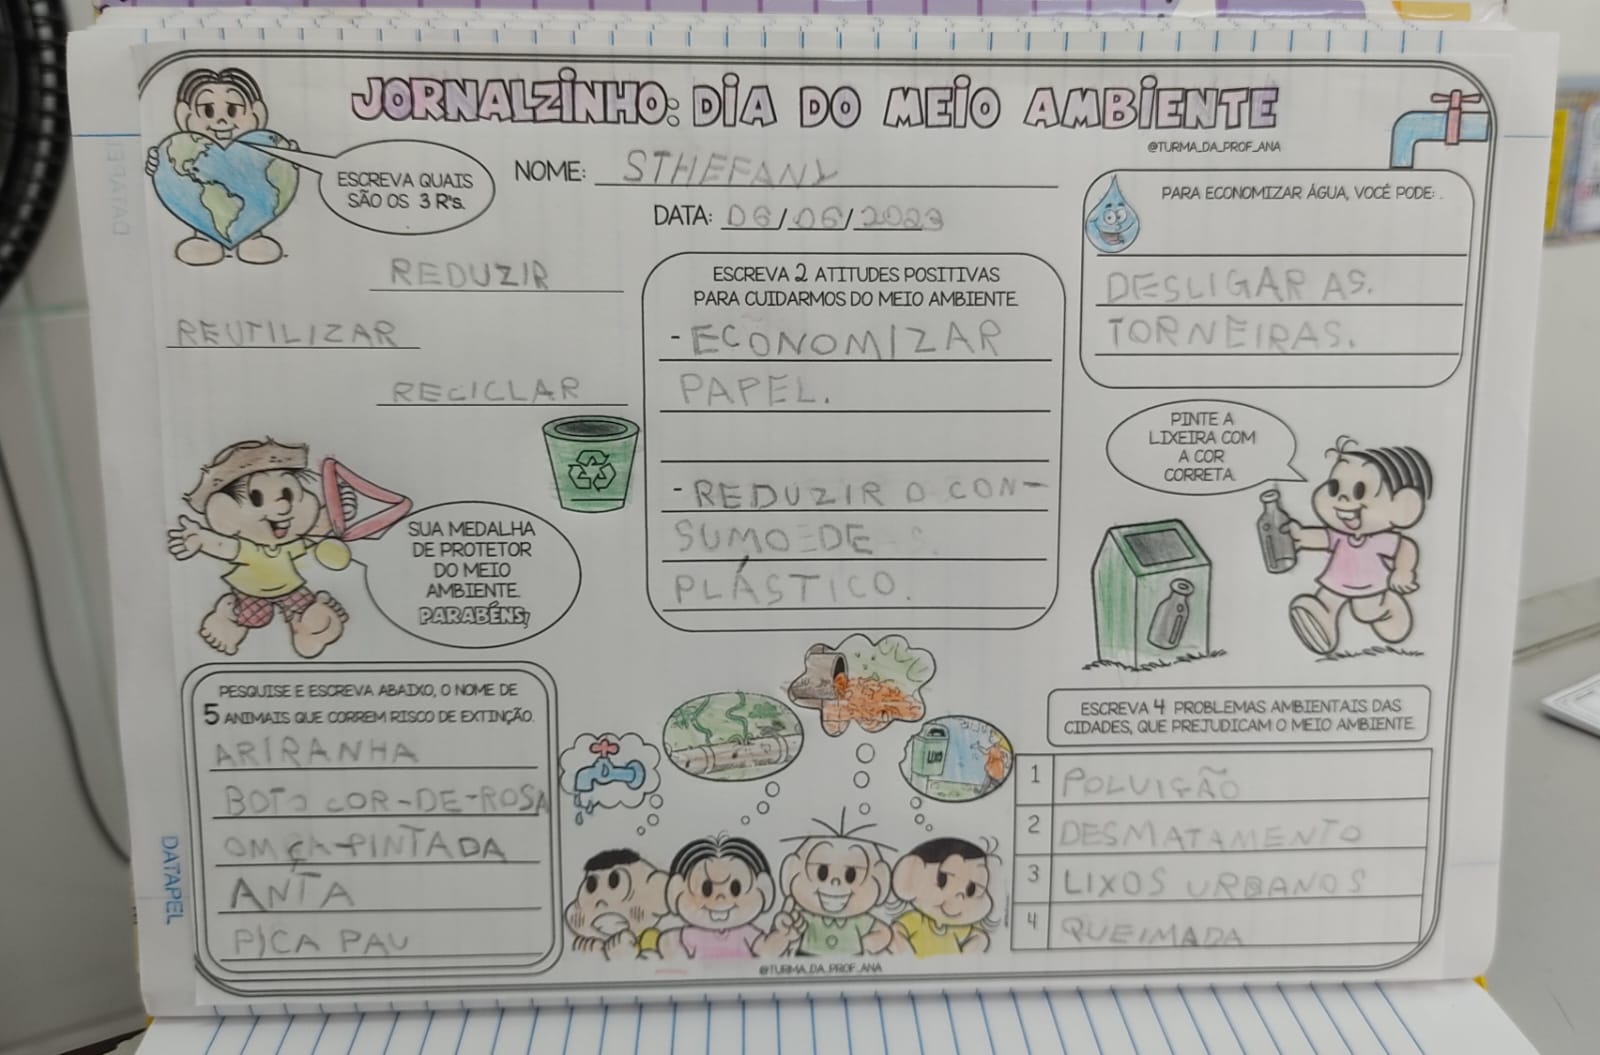 JORNALZINHO: DIA DO MEIO AMBIENTE
@TURMA_DA_PROF_ANA
ESCREVA QUAIS
SÃO OS 3 R's.
NOME: STHEFANY
DATA: 06/06/2023
REDUZIR
REUTILIZAR
RECICLAR
ESCREVA 2 ATITUDES POSITIVAS
PARA CUIDARMOS DO MEIO AMBIENTE.
-ECONOMIZAR
PAPEL.
-REDUZIR O CON-
SUMO DE
PLÁSTICO.
PARA ECONOMIZAR ÁGUA, VOCÊ PODE:
DESLIGAR AS.
TORNEIRAS.
PINTE A
LIXEIRA COM
A COR
CORRETA.
SUA MEDALHA
DE PROTETOR
DO MEIO
AMBIENTE.
PARABÉNS!
PESQUISE E ESCREVA ABAIXO, O NOME DE
5 ANIMAIS QUE CORREM RISCO DE EXTINÇÃO.
ARIRANHA
BOTO COR-DE-ROSA
OMÇA-PINTADA
ANTA
PICA PAU
LIXO
ESCREVA 4 PROBLEMAS AMBIENTAIS DAS
CIDADES, QUE PREJUDICAM O MEIO AMBIENTE.
1 POLUIÇÃO
2 DESMATAMENTO
3 LIXOS URBANOS
4 QUEIMADA
@TURMA_DA_PROF_ANA
DATAPEL